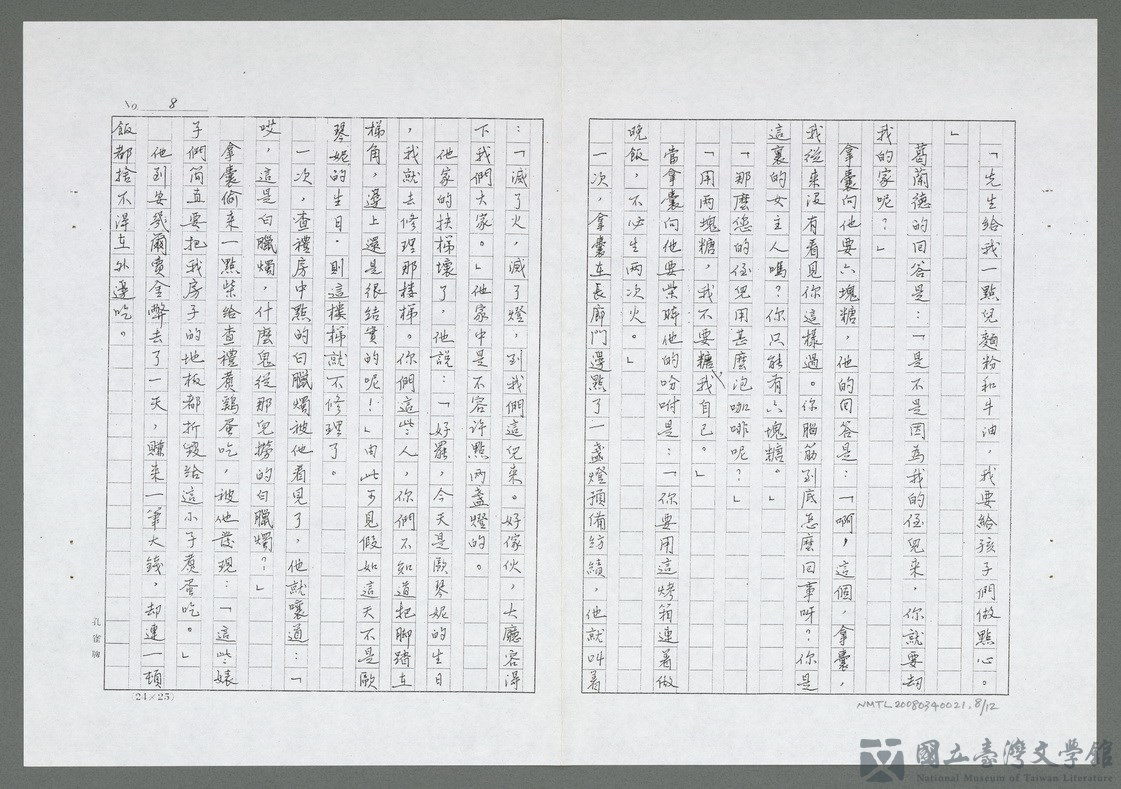 「先生給我一點兒麵粉和牛油，我要給孩子們做點心。
」
葛蘭德的回答是：「是不是因為我的侄兒来，你就要刼
我的家呢？」
拿囊向他要六塊糖，他的回答是：「啊，這個，拿囊，
我從来沒有看見你這樣過。你腦筋到底怎麼回事呀？你是
這裏的女主人嗎？你只能有六塊糖。」
「那麼您的侄兒用甚麼泡咖啡呢？」
「用两塊糖，我不要糖我自己。」
當拿囊向他要柴時他的吩咐是：「你要用這烤箱連着做
晚飯，不必生两次火。」
一次，拿囊在長廊門邊點了一盞燈預備紡績，他就叫着
：「滅了火，滅了燈，到我們這兒来。好傢伙，大廳容得
下我們大家。」他家中是不容许點两盞燈的。
他家的扶梯壞了，他説：「好罷，今天是歐琴妮的生日
，我就去修理那楼梯。你們這些人，你們不知道把脚踏在
梯角，邊上還是很结實的呢！」由此可見假如這天不是歐
琴妮的生日，則這樓梯就不修理了。
一次，查禮房中點的白臘燭被他看見了，他就嚷道：「
哎，這是白臘燭，什麼鬼從那兒撈的白臘燭？」
拿囊偷来一點柴给查禮煮鷄蛋吃，被他發現：「這些婊
子們简直要把我房子的地板都折毀给這小子煮蛋吃。」
他到安幾爾賣金幣去了一天，賺来一筆大錢，却連一頓
飯都捨不得在外邊吃。
No. 8
孔雀牌
24×25
NMTL20080340021.8/12
國立臺灣文學館
National Museum of Taiwan Literature